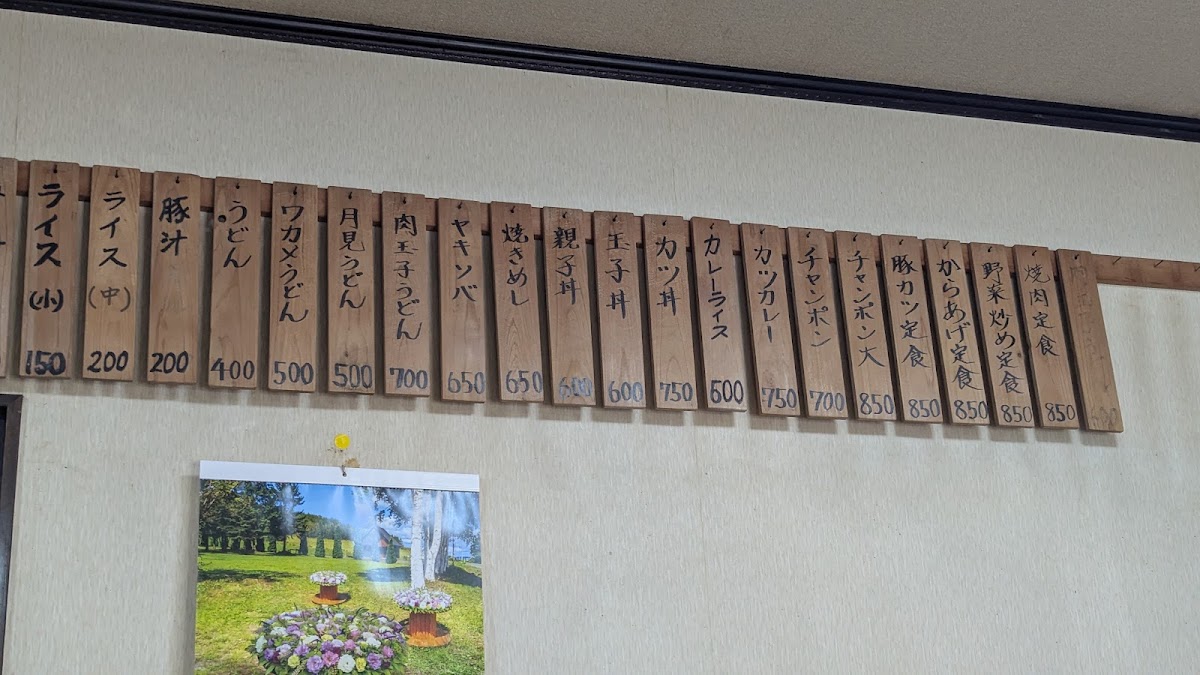 ライス(小) 150
ライス(中) 200
豚汁 200
うどん 400
ワカメうどん 500
月見うどん 500
肉玉子うどん 700
ヤキソバ 650
焼きめし 650
親子丼 600
玉子丼 600
カツ丼 750
カレーライス 600
カツカレー 750
チャンポン 700
チャンポン大 850
豚カツ定食 850
からあげ定食 850
野菜炒め定食 850
焼肉定食 850